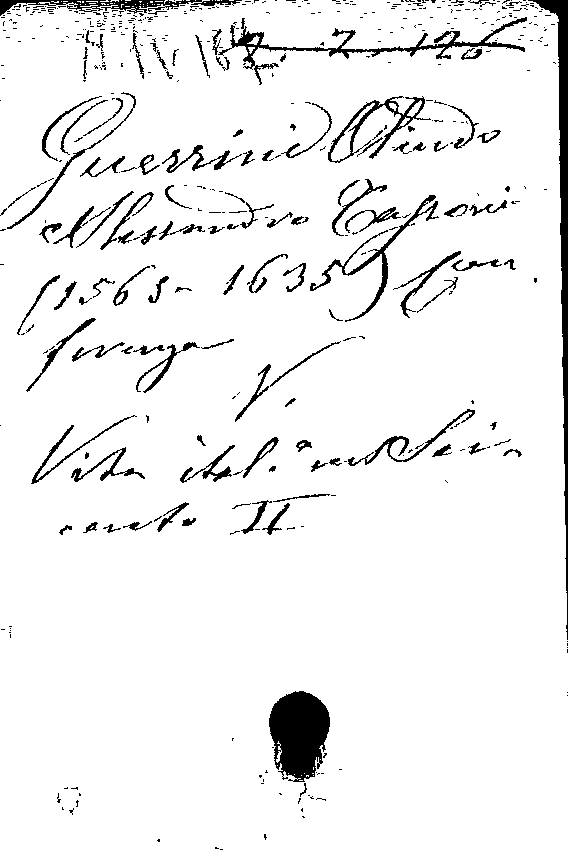 H. IV 164
2. 7. 126
Guerrini Olindo
Alessandro Tassoni
(1565-1635) Con
ferenza
V.
Vita ital.ª nel Sei-
cento II